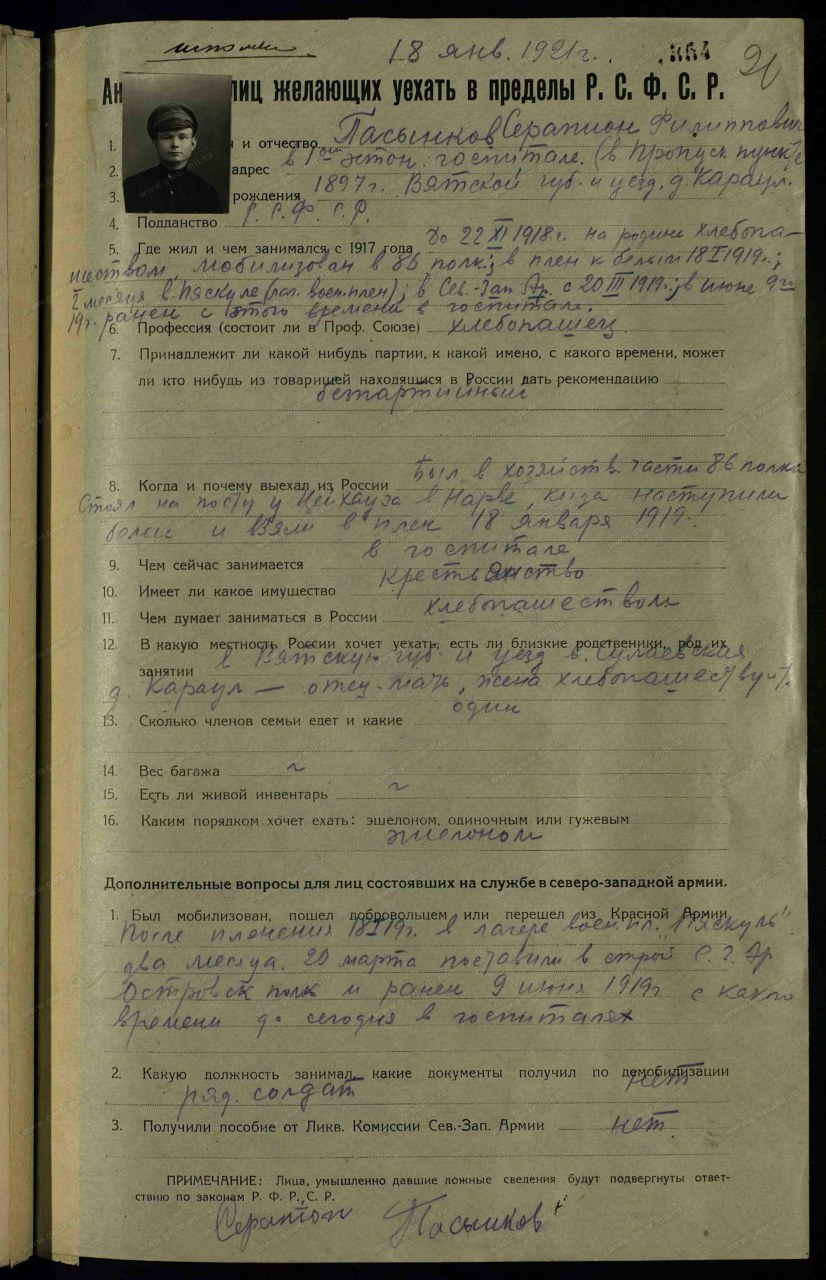 18 янв. 1921 г. 864 20
Ан лиц желающих уехать в пределы Р. С. Ф. С. Р.
1. и отчество Пасынков Серапион Филиппович
2. адрес в 1ом эстон. госпитале. (в Пропуск. пункте
3. рождения 1897 г. Вятской губ. и уезд. д. Караул.
4. Подданство Р. С. Ф. С. Р.
5. Где жил и чем занимался с 1917 года До 22 XI 1918 г. на родине хлебопа-
шеством, мобилизован в 86 полк; в плен к белым 18 I 1919 г.;
2 месяца в Пяскуле (лаг. воен. плен); в Сев.-Зап. Ар. с 20 III 1919 г.; в июне 9го
19 г. ранен с этого времени в госпитале.
6. Профессия (состоит ли в Проф. Союзе) хлебопашец
7. Принадлежит ли какой нибудь партии, к какой имено, с какого времени, может
ли кто нибудь из товарищей находящися в России дать рекомендацию
безпартийный
8. Когда и почему выехал из России Был в хозяйств. части 86 полка
Стоял на посту у Цейхауза в Нарве, когда наступили
белые и взяли в плен 18 января 1919.
9. Чем сейчас занимается в госпитале
10. Имеет ли какое имущество крестьянство
11. Чем думает заниматься в России хлебопашеством
12. В какую местность России хочет уехать, есть ли близкие родственики, род их
занятии в Вятскую губ. и уезд в.
д. Караул — отец-мать, жена хлебопашествуют.
13. Сколько членов семьи едет и какие один
14. Вес багажа ~
15. Есть ли живой инвентарь ~
16. Каким порядком хочет ехать: эшелоном, одиночным или гужевым
эшелоном
Дополнительные вопросы для лиц состоявших на службе в северо-западной армии.
1. Был мобилизован, пошел добровольцем или перешел из Красной Армии
После пленения 18 I 19 г. в лагере воен. пл. "Пяскуль"
два месяца. 20 марта поставили в строй С. З. Ар
Островск полк и ранен 9 июня 1919 г с какго
времени до сегодня в госпиталях
2. Какую должность занимал, какие документы получил по демобилизации
ряд. солдат нет
3. Получили пособие от Ликв. Комиссии Сев.-Зап. Армии нет.
ПРИМЕЧАНИЕ: Лица, умышленно давшие ложные сведения будут подвергнуты ответ-
ствию по законам Р. Ф. Р. С. Р.
Серапион Пасынков